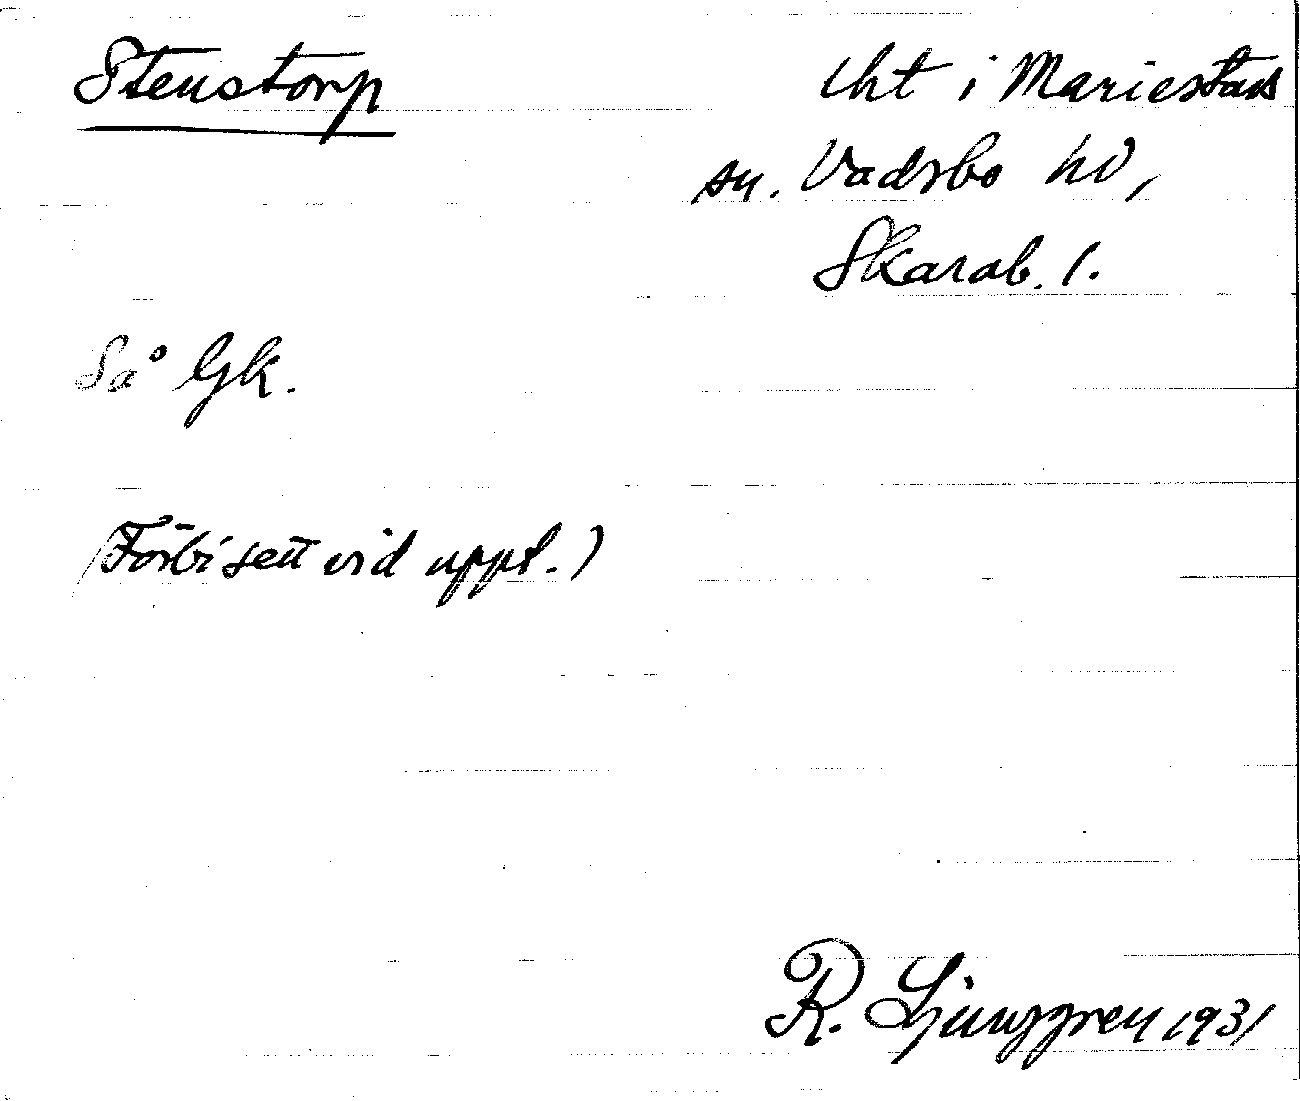 Stenstorp
lht i Mariestads
sn. Vadsbo hd,
Skarab. l.
Så Gk.
(Förbisett vid uppt.)
R. Ljunggren 1931